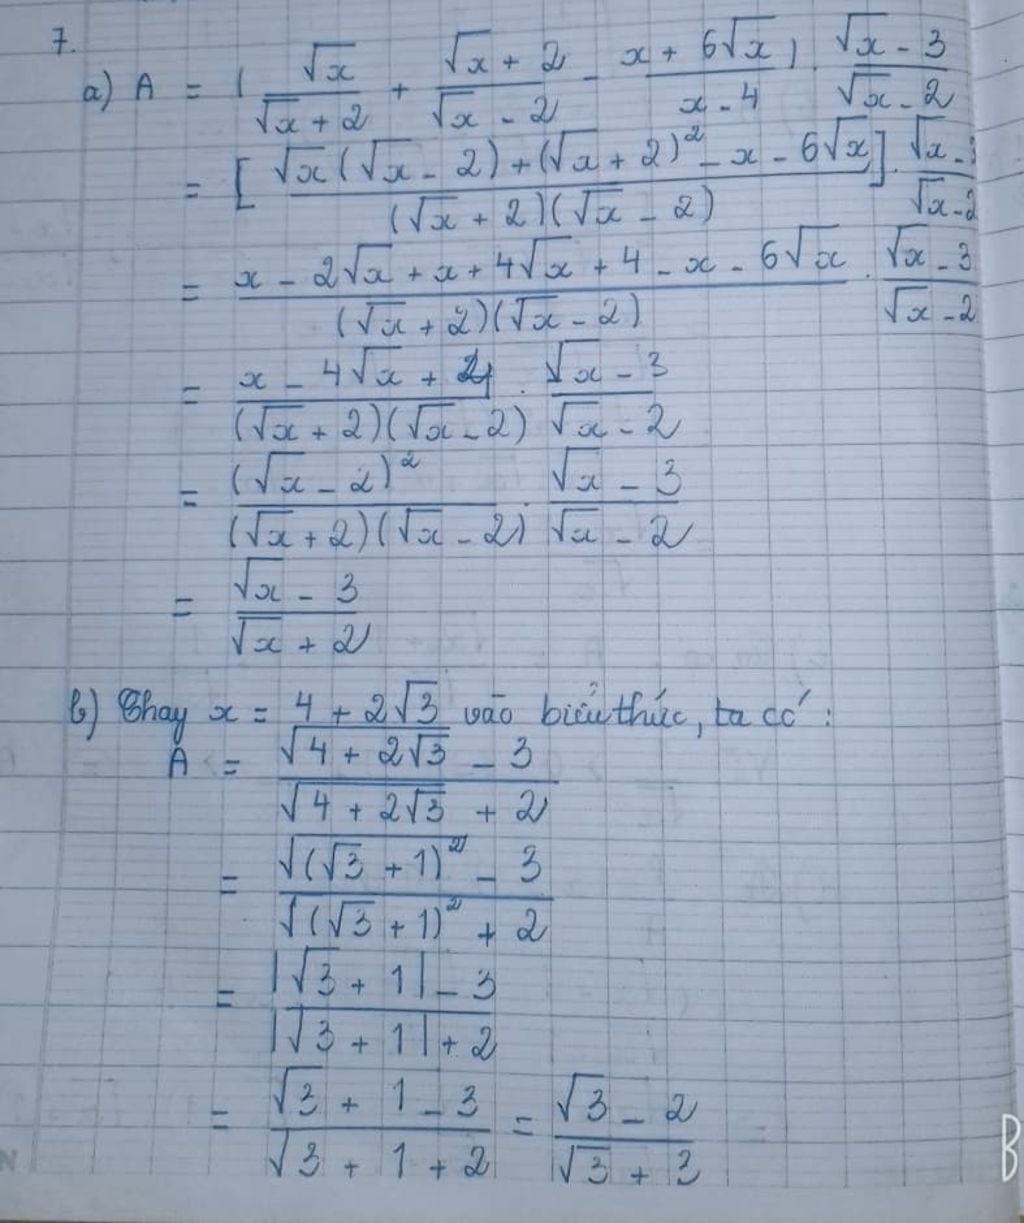 7.
a) A = ( √x / (√x + 2) + (√x + 2) / (√x - 2) - (x + 6√x) / (x - 4) ) . (√x - 3) / (√x - 2)
= [ (√x(√x - 2) + (√x + 2)² - x - 6√x) / ((√x + 2)(√x - 2)) ] . (√x - 3) / (√x - 2)
= (x - 2√x + x + 4√x + 4 - x - 6√x) / ((√x + 2)(√x - 2)) . (√x - 3) / (√x - 2)
= (x - 4√x + 4) / ((√x + 2)(√x - 2)) . (√x - 3) / (√x - 2)
= (√x - 2)² / ((√x + 2)(√x - 2)) . (√x - 3) / (√x - 2)
= (√x - 3) / (√x + 2)
b) Thay x = 4 + 2√3 vào biểu thức, ta có :
A = (√(4 + 2√3) - 3) / (√(4 + 2√3) + 2)
= (√((√3 + 1)²) - 3) / (√((√3 + 1)²) + 2)
= (|√3 + 1| - 3) / (|√3 + 1| + 2)
= (√3 + 1 - 3) / (√3 + 1 + 2) = (√3 - 2) / (√3 + 3)
B